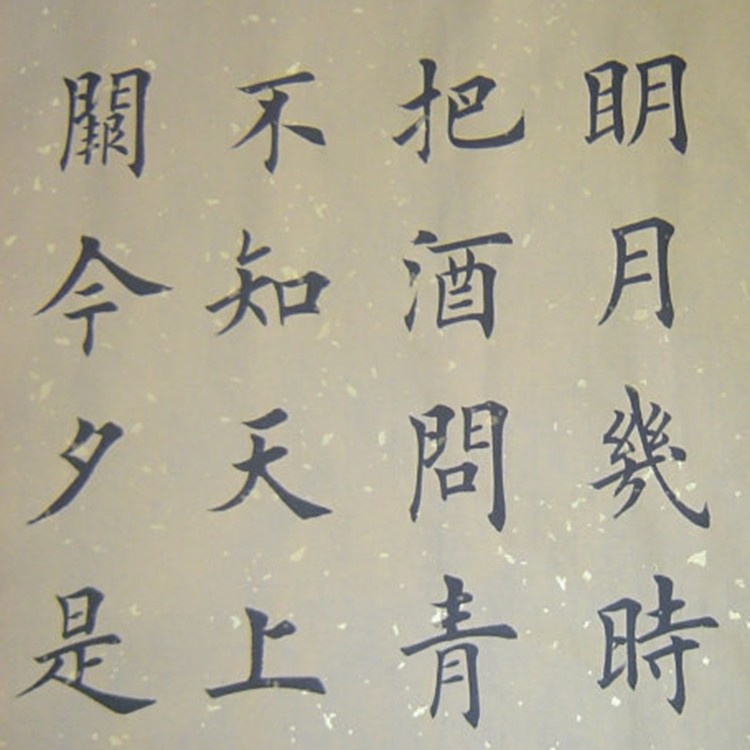 眀月幾時
把酒問青
不知天上
闕今夕是